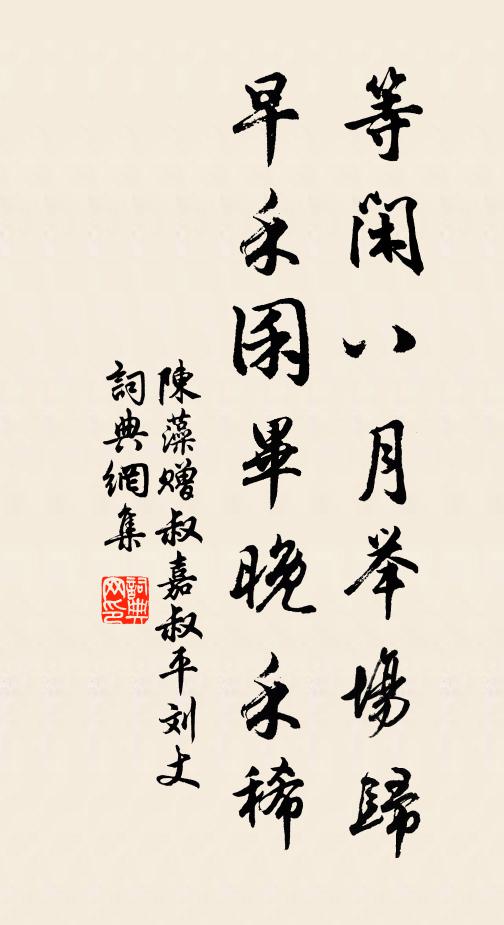 等闲八月举場歸
早禾囷畢晚禾稀
陳藻赠叔嘉叔平刘丈
詞典網集
詞典網印